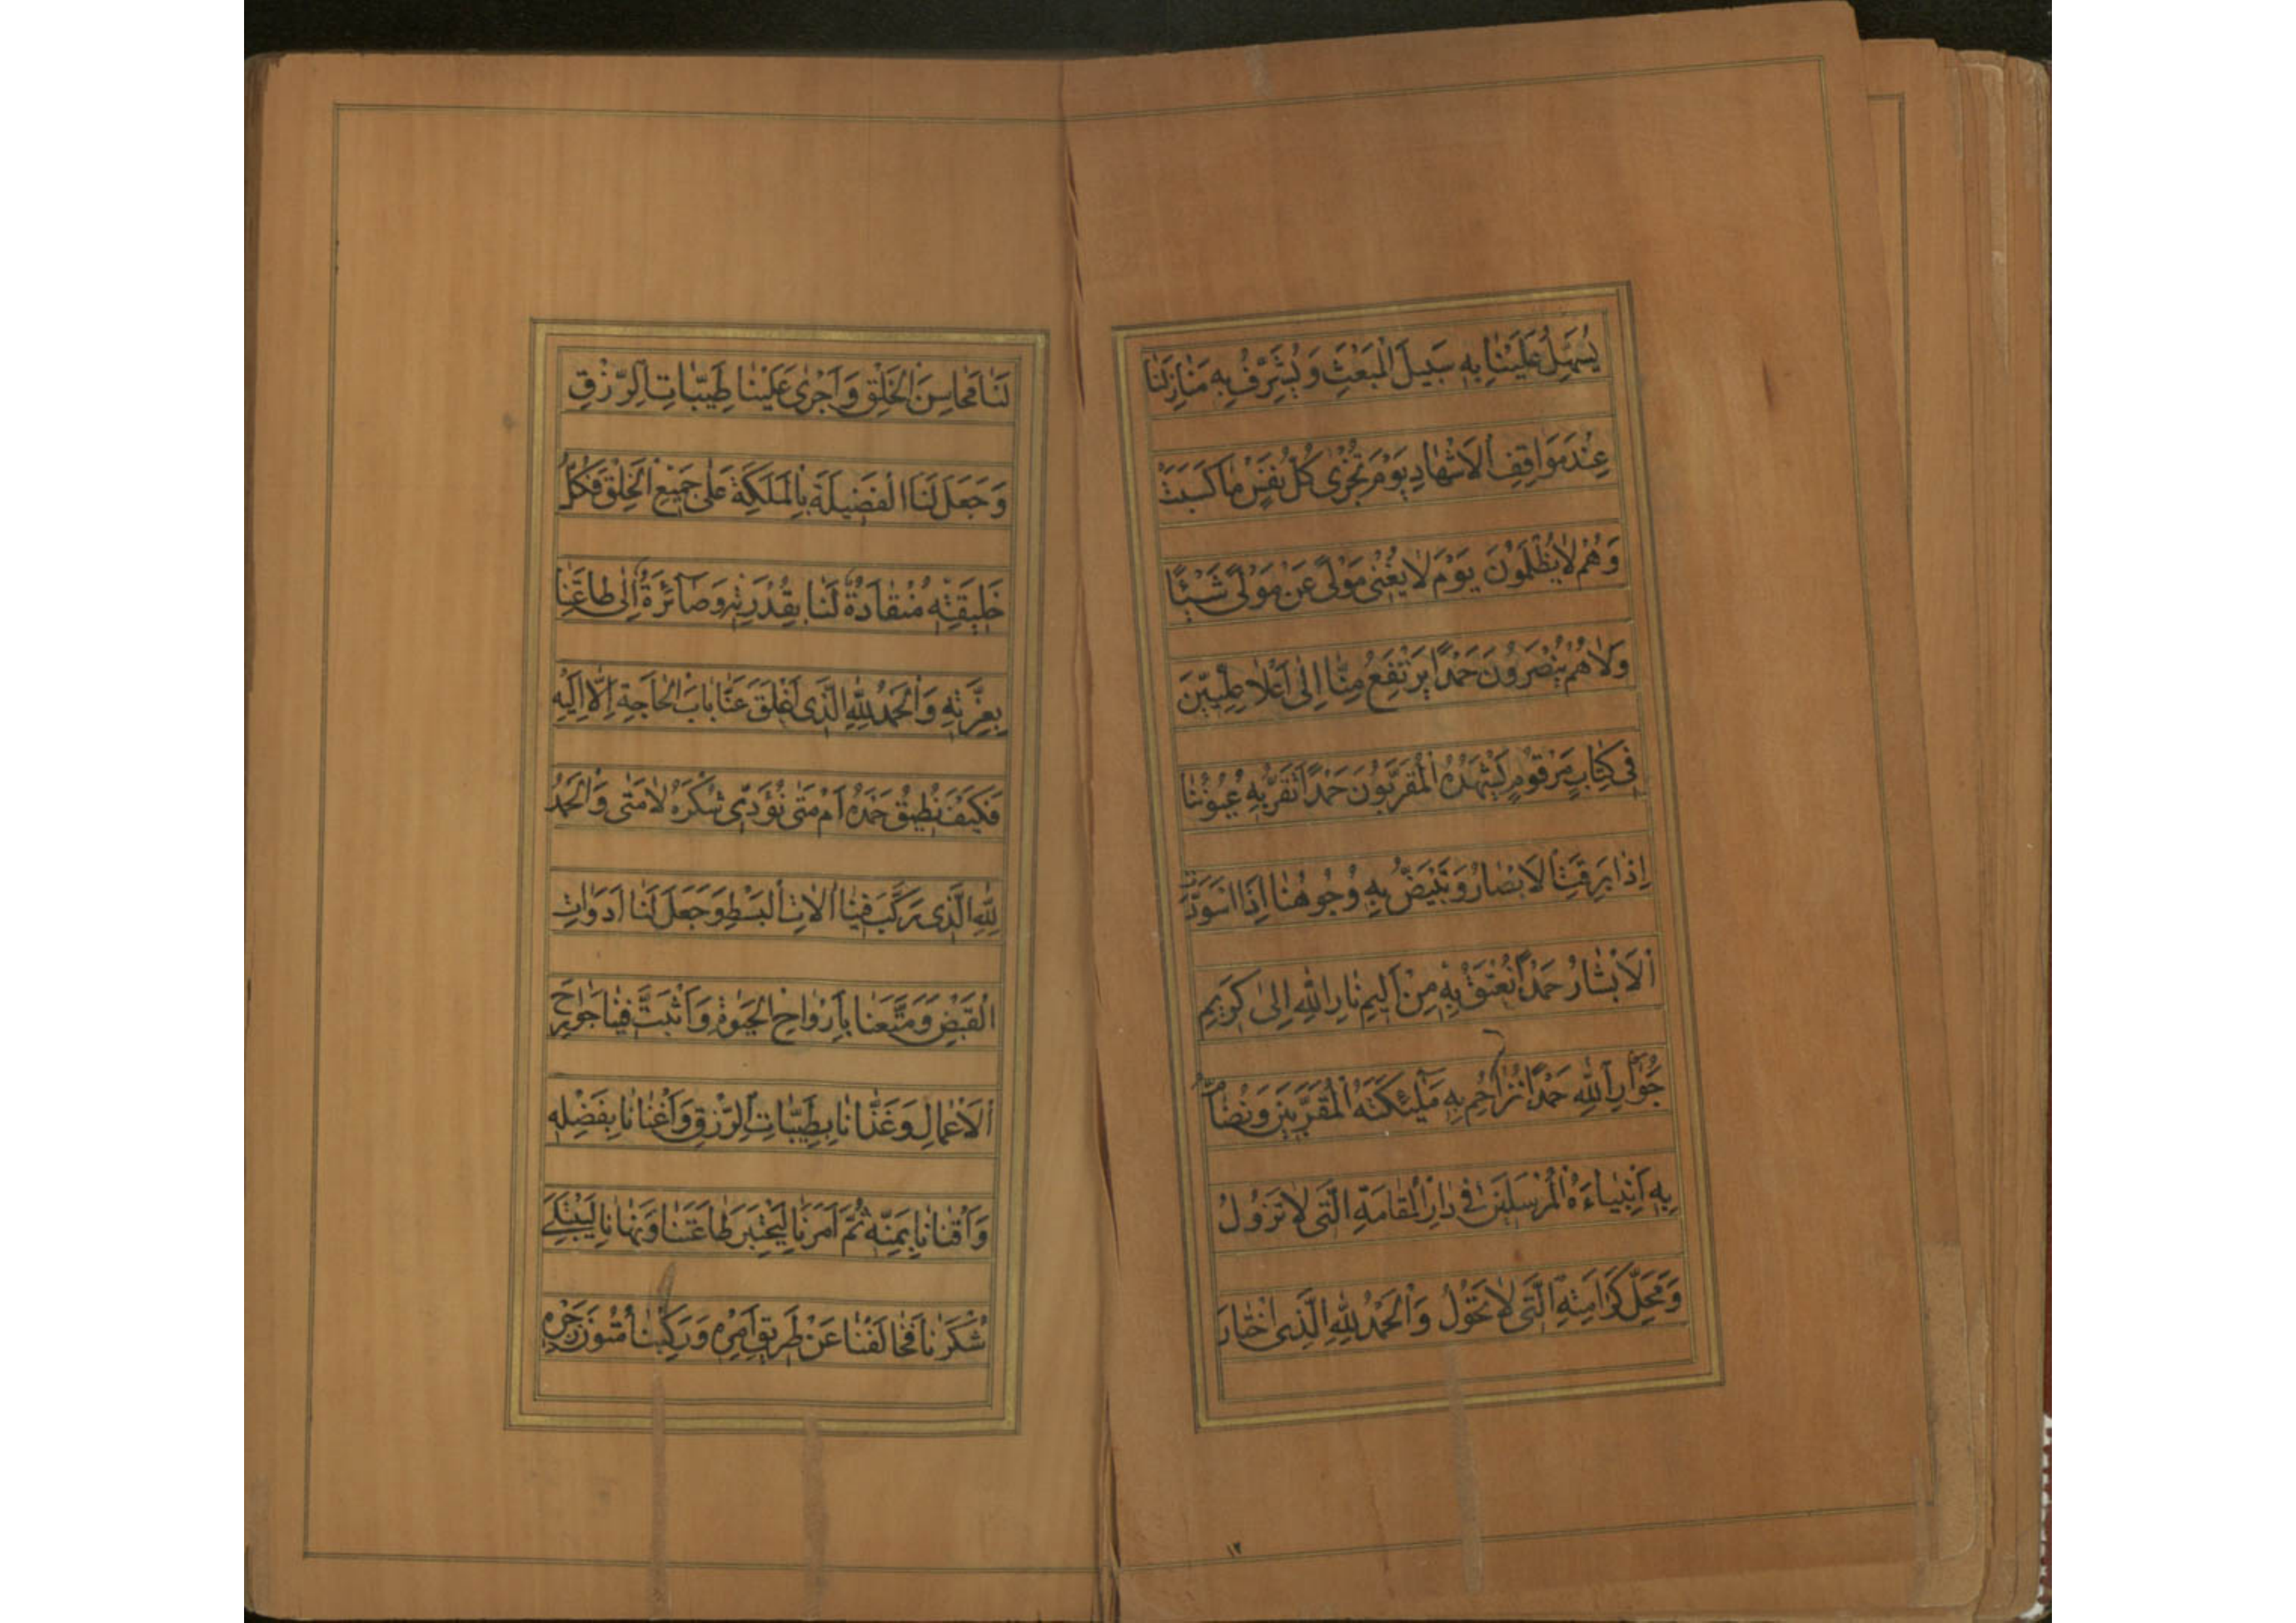 يُسَهِّلُ عَلَيْنَا بِهِ سَبِيلَ الْمَبْعَثِ وَيُشَرِّفُ بِهِ مَنَازِلَنَا
عِنْدَ مَوَاقِفِ الْاَشْهَادِ يَوْمَ تُجْزٰى كُلُّ نَفْسٍ مَا كَسَبَتْ
وَهُمْ لَا يُظْلَمُونَ يَوْمَ لَا يُغْنِي مَوْلًى عَنْ مَوْلًى شَيْئًا
وَلَا هُمْ يُنْصَرُونَ حَمْدًا يَرْتَفِعُ مِنَّا اِلٰى اَعْلَا عِلِّيِّينَ
فِي كِتَابٍ مَرْقُومٍ يَشْهَدُهُ الْمُقَرَّبُونَ حَمْدًا تَقَرُّ بِهِ عُيُونُنَا
اِذَا بَرِقَتِ الْاَبْصَارُ وَتَبْيَضُّ بِهِ وُجُوهُنَا اِذَا اسْوَدَّتِ
الْاَبْشَارُ حَمْدًا نُعْتَقُ بِهِ مِنْ اَلِيمِ نَارِ اللهِ اِلٰى كَرِيمِ
جِوَارِ اللهِ حَمْدًا نُزَاحِمُ بِهِ مَلٰٓئِكَتَهُ الْمُقَرَّبِينَ وَنُضَامُّ
بِهِ اَنْبِيَاءَهُ الْمُرْسَلِينَ فِي دَارِ الْمُقَامَةِ الَّتِي لَا تَزُولُ
وَمَحَلِّ كَرَامَتِهِ الَّتِي لَا تَحُولُ وَالْحَمْدُ لِلّٰهِ الَّذِي اخْتَارَ
١٢
لَنَا مَحَاسِنَ الْخَلْقِ وَاَجْرٰى عَلَيْنَا طَيِّبَاتِ الرِّزْقِ
وَجَعَلَ لَنَا الْفَضِيلَةَ بِالْمَلَكَةِ عَلٰى جَمِيعِ الْخَلْقِ فَكُلُّ
خَلِيقَتِهِ مُنْقَادَةٌ لَنَا بِقُدْرَتِهِ وَصَآئِرَةٌ اِلٰى طَاعَتِنَا
بِعِزَّتِهِ وَالْحَمْدُ لِلّٰهِ الَّذِي اَغْلَقَ عَنَّا بَابَ الْحَاجَةِ اِلَّا اِلَيْهِ
فَكَيْفَ نُطِيقُ حَمْدَهُ اَمْ مَتٰى نُؤَدِّي شُكْرَهُ لَا مَتٰى وَالْحَمْدُ
لِلّٰهِ الَّذِي رَكَّبَ فِينَا اٰلَاتِ الْبَسْطِ وَجَعَلَ لَنَا اَدَوَاتِ
الْقَبْضِ وَمَتَّعَنَا بِاَرْوَاحِ الْحَيٰوةِ وَاَثْبَتَ فِينَا جَوَارِحَ
الْاَعْمَالِ وَغَذَّانَا بِطَيِّبَاتِ الرِّزْقِ وَاَغْنَانَا بِفَضْلِهِ
وَاَقْنَانَا بِمَنِّهِ ثُمَّ اَمَرَنَا لِيَخْتَبِرَ طَاعَتَنَا وَنَهَانَا لِيَبْتَلِيَ
شُكْرَنَا فَخَالَفْنَا عَنْ طَرِيقِ اَمْرِهِ وَرَكِبْنَا مُتُونَ زَجْرِهِ